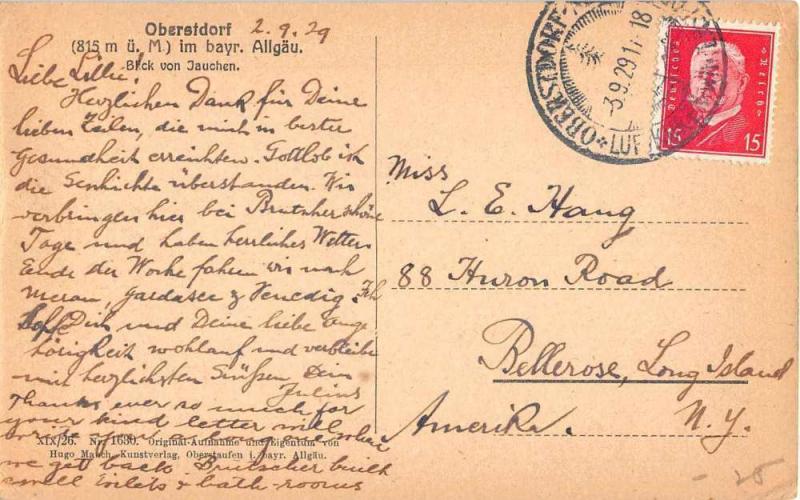 Oberstdorf 2.9.29
(815 m ü. M.) im bayr. Allgäu.
Blick von Jauchen.
Liebe Lillie.
Herzlichen Dank für Deine
lieben Zeilen, die mich in bester
Gesundheit erreichten. Gottlob ist
die Geschichte überstanden. Wir
verbringen hier bei Brutscher schöne
Tage und haben herrliches Wetter.
Ende der Woche fahren wir nach
Meran, Gardasee & Venedig. Ich
hoffe Dich und Deine liebe Ange
hörigkeit wohlauf und verbleibe
mit herzlichsten Grüßen Dein
Julius
Thanks ever so much for
your kind letter will
when
we get back. Brutscher built
toilets & bath-rooms
XIX/26. Nr. 1680. Original-Aufnahme und Eigentum von
Hugo Masch, Kunstverlag, Oberstaufen i. bayr. Allgäu.
OBERSTDORF
-3.9.29 17-18
LUF
Deutsches Reich
15 15
Miss
L. E. Hang
88 Huron Road
Bellerose, Long Island
Amerika. N. Y.
25